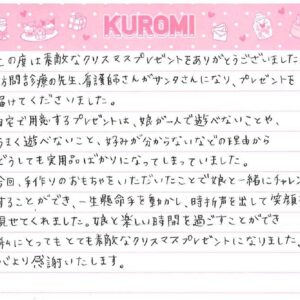 KUROMI
この度は素敵なクリスマスプレゼントをありがとうございました
訪問診療の先生、看護師さんがサンタさんになり、プレゼントを
届けてくださいました。
自宅で用意するプレゼントは、娘が一人で遊べないことや、
うまく遊べないこと、好みが分からないなどの理由から
どうしても実用品ばかりになってしまっていました。
今回、手作りのおもちゃをいただいたことで娘と一緒にチャレン
することができ、一生懸命手を動かし、時折声を出して笑顔を
見せてくれました。娘と楽しい時間を過ごすことができ
私にとってもとても素敵なクリスマスプレゼントになりました。
心より感謝いたします。